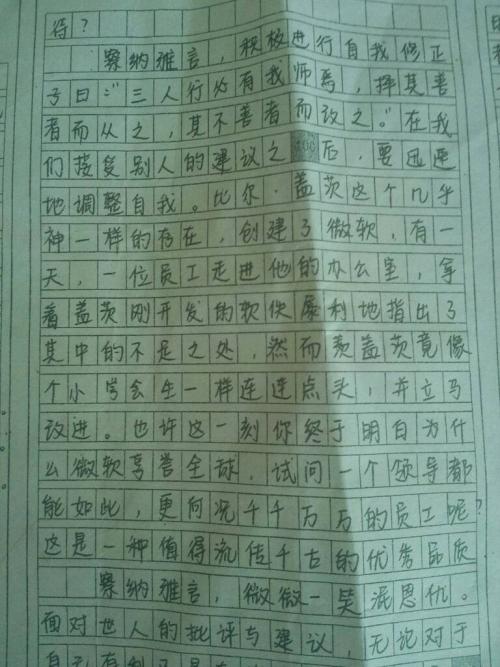 待？
察纳雅言，积极进行自我修正
子曰：“三人行必有我师焉，择其善
者而从之，其不善者而改之。”在我
们接受别人的建议之后，要迅速
地调整自我。比尔·盖茨这个几乎
神一样的存在，创建了微软，有一
天，一位员工走进他的办公室，拿
着盖茨刚开发的软件犀利地指出了
其中的不足之处，然而盖茨竟像
个小学生一样连连点头，并立马
改进。也许这一刻你终于明白为什
么微软享誉全球，试问一个领导都
能如此，更何况千千万万的员工呢？
这是一种值得流传千古的优秀品质
察纳雅言，微微一笑泯恩仇。
面对世人的批评与建议，无论对于